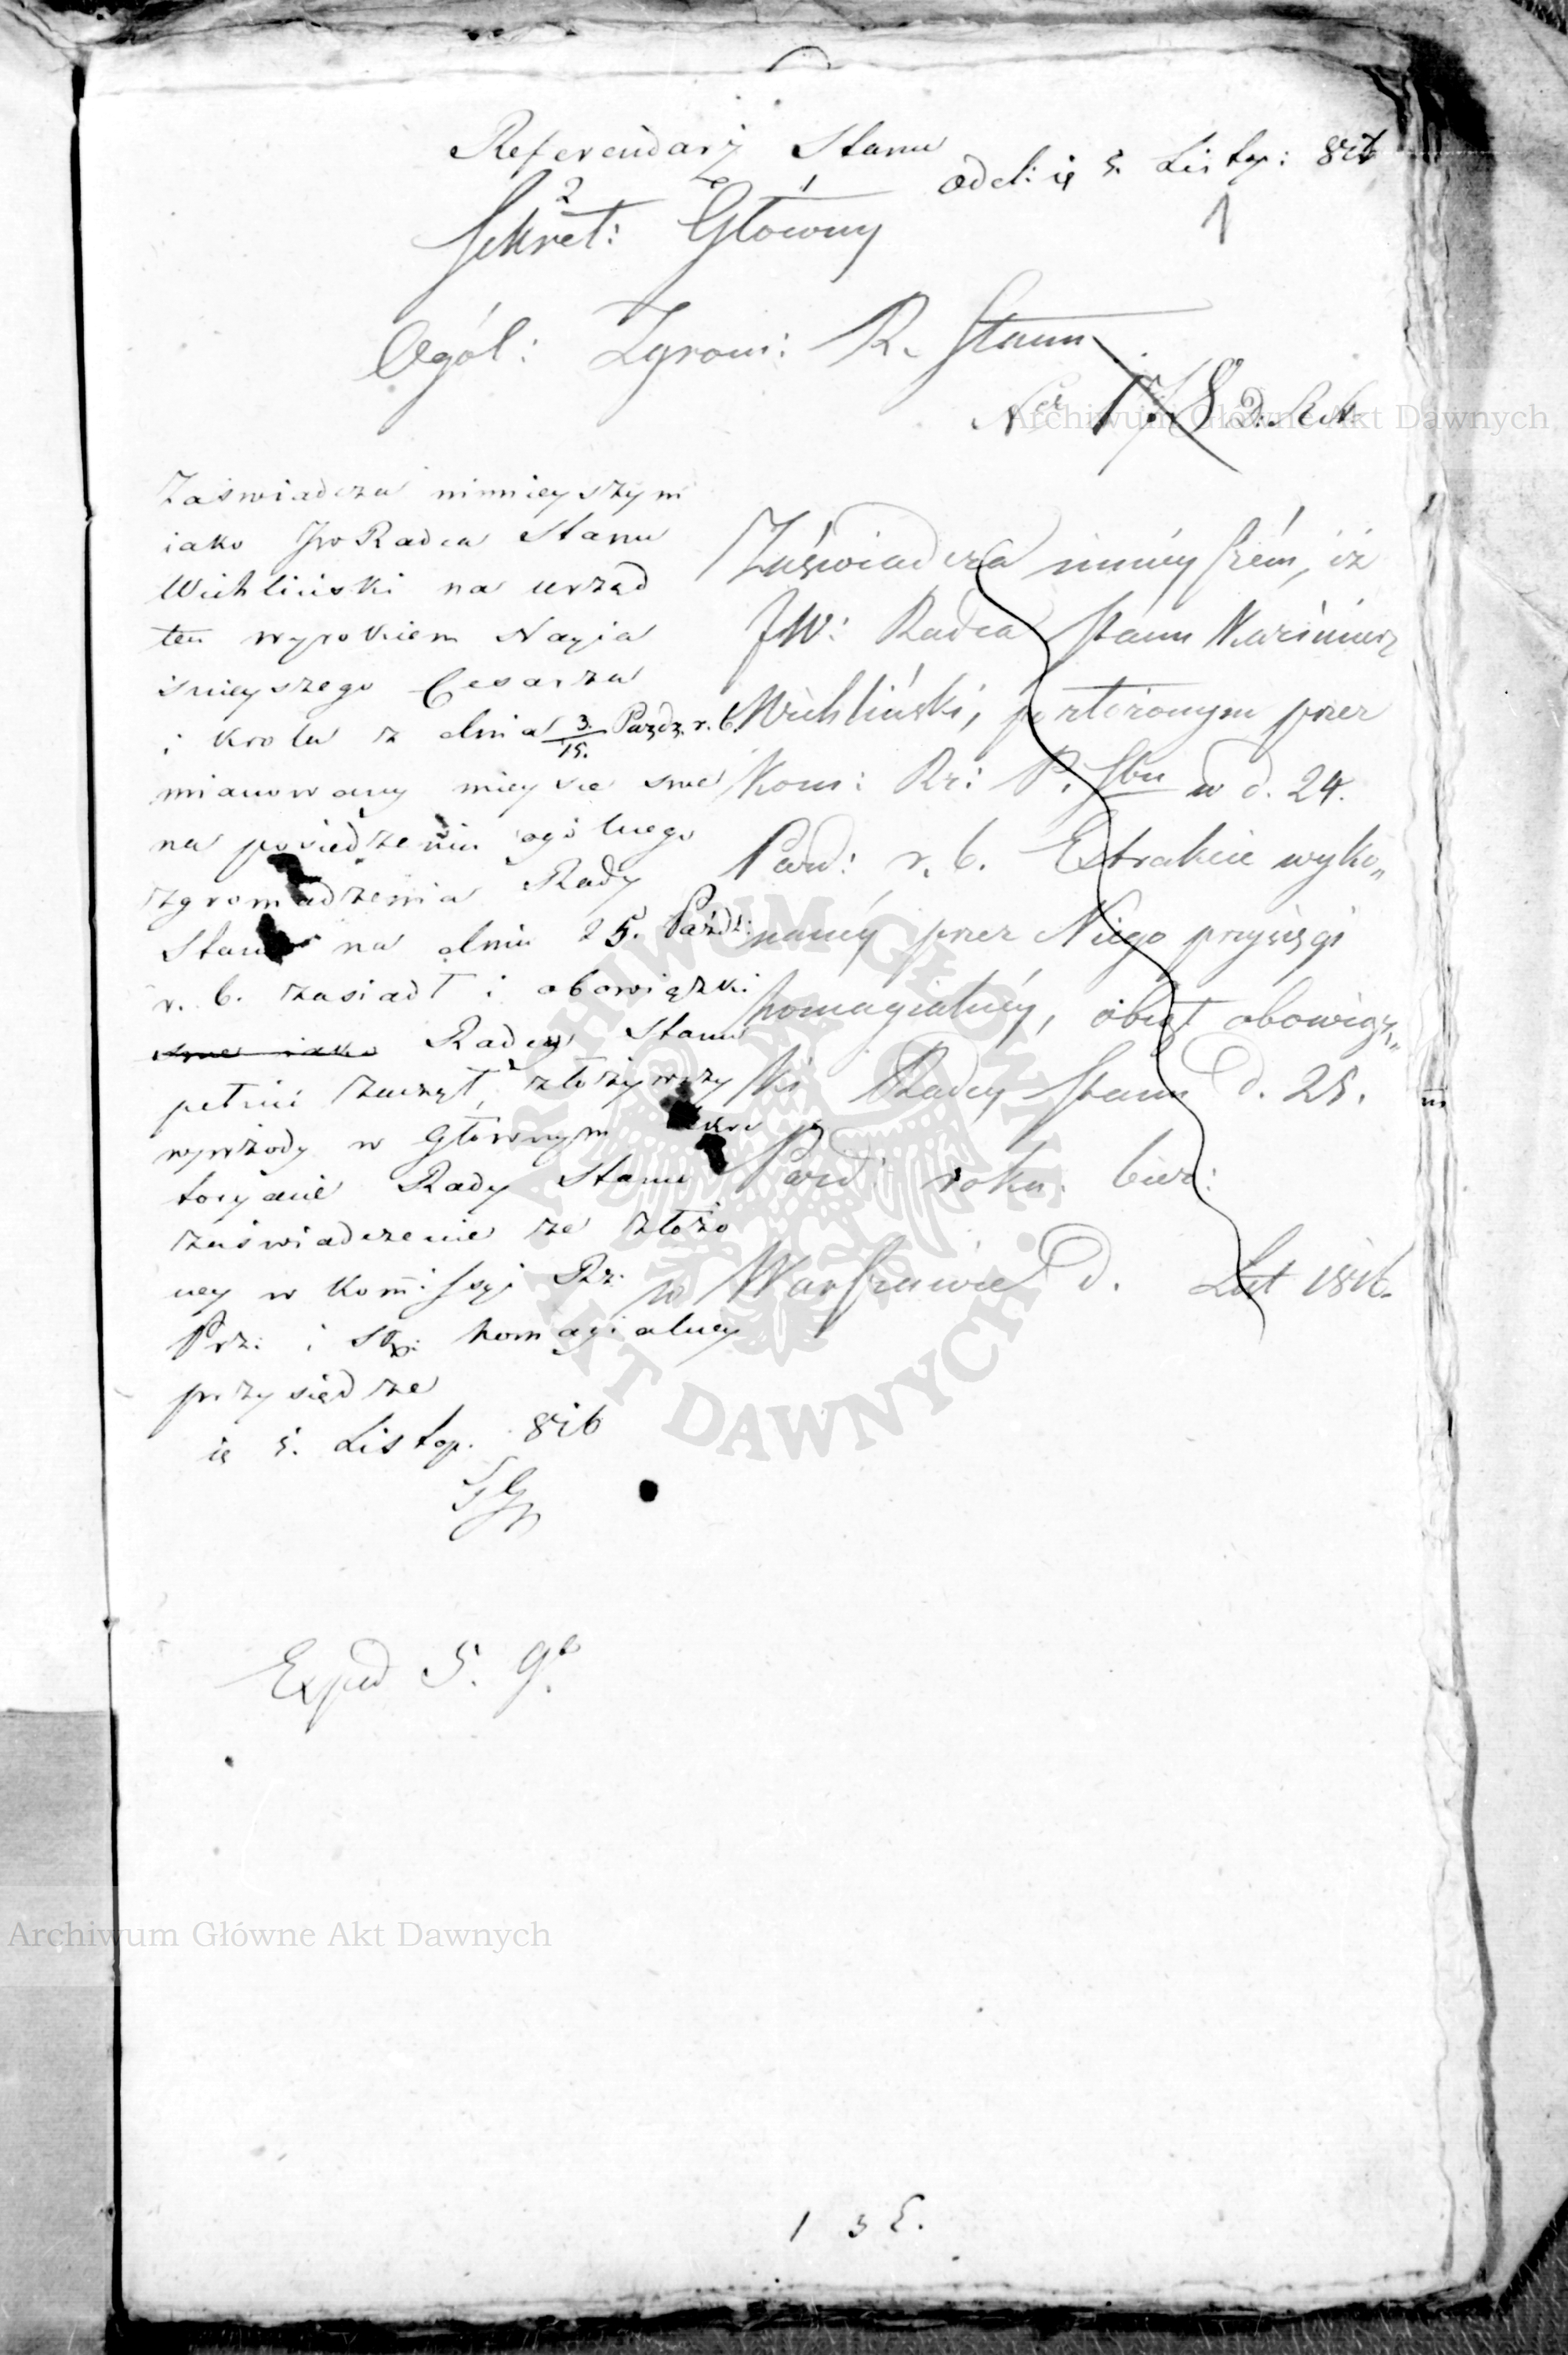 Referendarz Stanu
odd: ię 5. Listop: 816
2 1
Sekret: Główny
1
Ogól: Zgrom: R. Stanu
Nr 178 D.R.S.
Zaświadcza ninnieyszym
iako JW Radca Stanu
Wichliński na urząd
ten wyrokiem Nayia
śnieyszego Cesarza
i Krola z dnia 3./15. Pazdz. r. b.
mianowany mieysce swe
na posiedzeniu ogólnego
zgromadzenia Rady
Stanu na dniu 25. Paźdz:
r. b. zasiadł i obowiązki
swe iako Radcy Stanu
pełnić zaczął, złożywszy
wprzody w Głównym Sekre
taryacie Rady Stanu
zaświadczenie ze złożo
ney w Kommissyi Rz.
Prz: i Sk: homagialney
przysiędze
ię 5. Listop. 816
Zaświadcza ninieyszém, iż
JW: Radca Stanu Kazimierz
Wichliński, po złożonym przez
Kom: Rz: P. Sbu w d. 24.
Pazd: r. b. Extrakcie wyko„
nanéy przez Niego przysięgi
homagialnéy, obiął obowiąz„
ki Radcy Stanu d. 25.
Pazd: roku bież:
w Warszawie d. List 1816.
Exped 5. 9b.
1 3 E.
Archiwum Główne Akt Dawnych
Archiwum Główne Akt Dawnych
ARCHIWUM GŁÓWNE AKT DAWNYCH